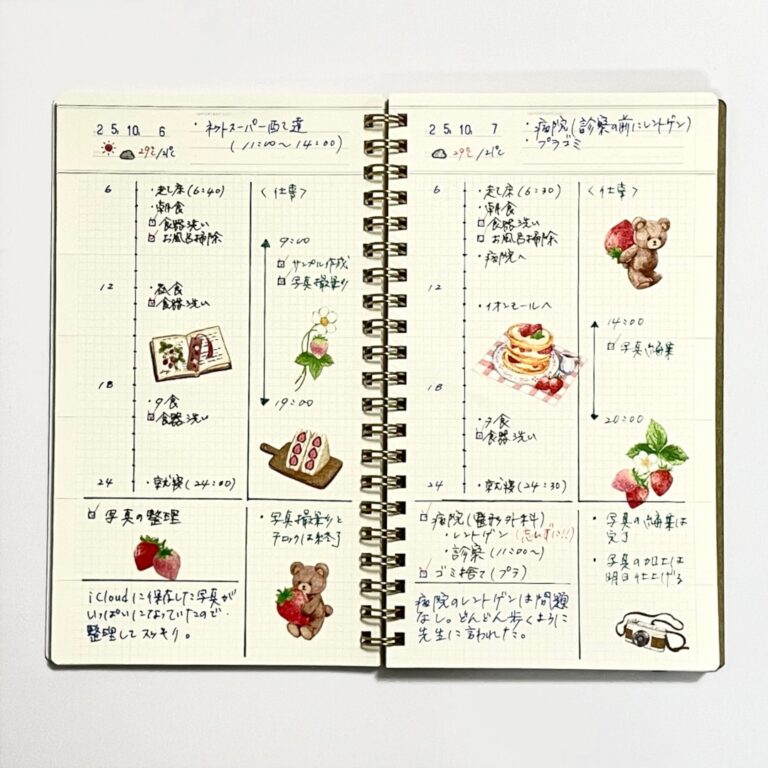 25. 10. 6
・ネットスーパー配達
(11:00〜14:00)
29℃/21℃
6
・起床(6:40)
・朝食
食器洗い
お風呂掃除
12
・昼食
食器洗い
18
・夕食
食器洗い
24
・就寝(24:00)
<仕事>
9:00
サンプル作成
写真撮影
19:00
写真の整理
・写真撮影と
チェックは終了
iCloudに保存した写真が
いっぱいになっていたので、
整理してスッキリ。
25. 10. 7
・病院(診察の前にレントゲン)
・プラゴミ
29℃/21℃
6
・起床(6:30)
・朝食
食器洗い
お風呂掃除
・病院へ
12
・イオンモールへ
18
・夕食
食器洗い
24
・就寝(24:30)
<仕事>
14:00
写真編集
20:00
病院(整形外科)
・レントゲン(忘れずに!!)
・診察(11:00〜)
ゴミ捨て(プラ)
・写真の編集は
完了
・写真の加工は
明日仕上げる
病院のレントゲンは問題
なし。どんどん歩くように
先生に言われた。